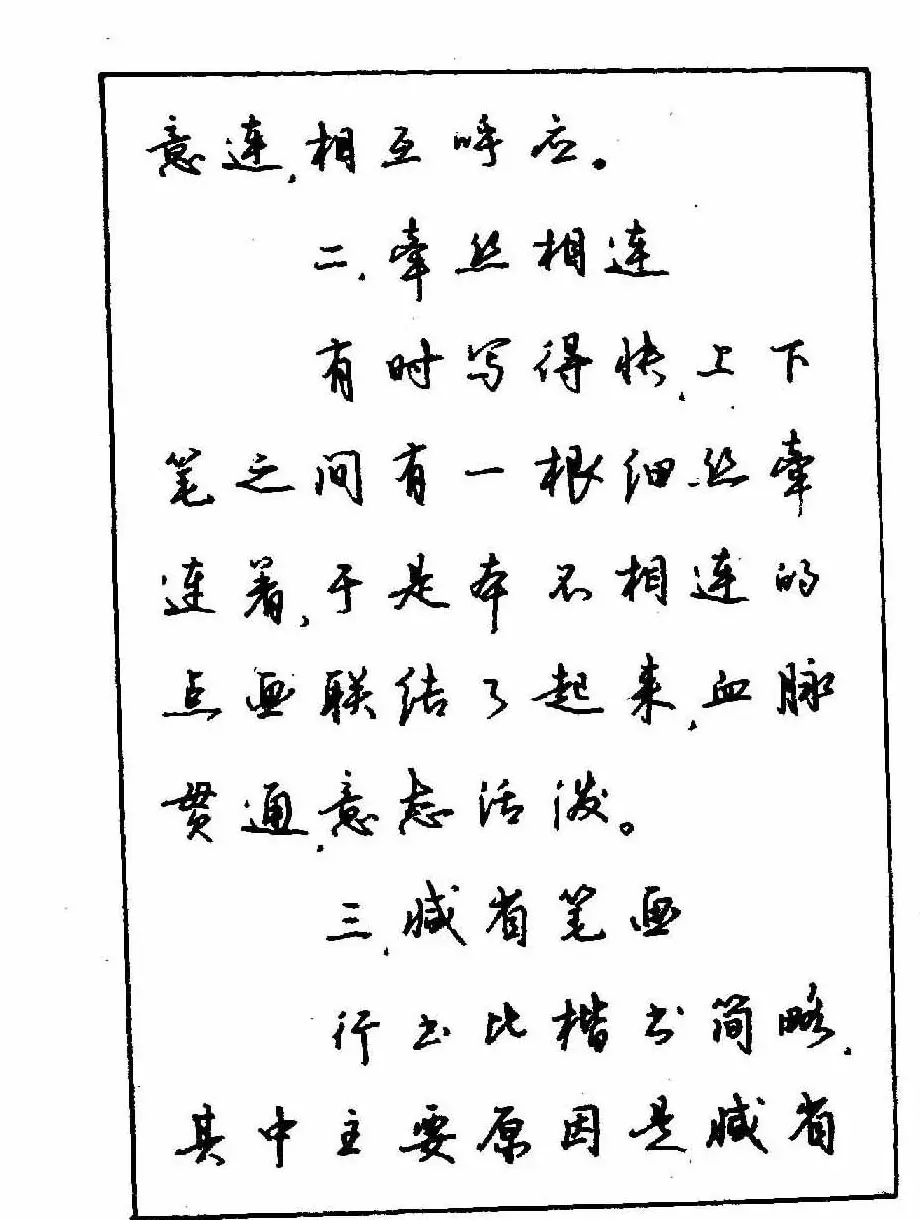 意连,相互呼应。
二、牵丝相连
有时写得快,上下
笔之间有一根细丝牵
连着,于是本不相连的
点画联结了起来,血脉
贯通,意态活泼。
三、减省笔画
行书比楷书简略,
其中主要原因是减省